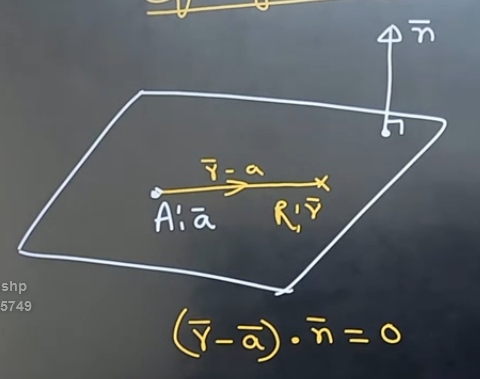 n̅
r̅ - a
A; a̅
R; r̅
shp
5749
(r̅ - a̅) · n̅ = 0